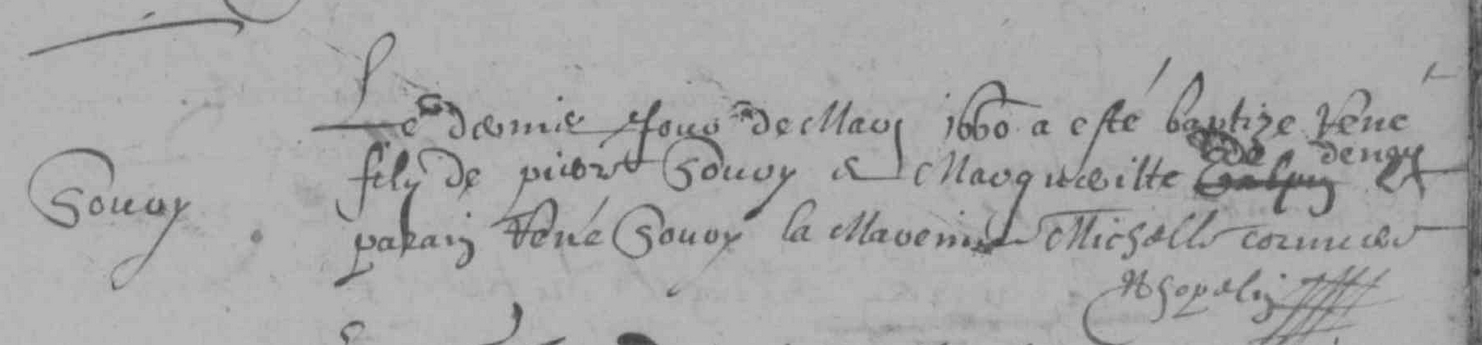 Le dernie Jour de Mars 1660 a esté baptize René
Goury
fils de pierre Goury et Margueritte de denys
parain René Goury la Mareine Michelle cormier